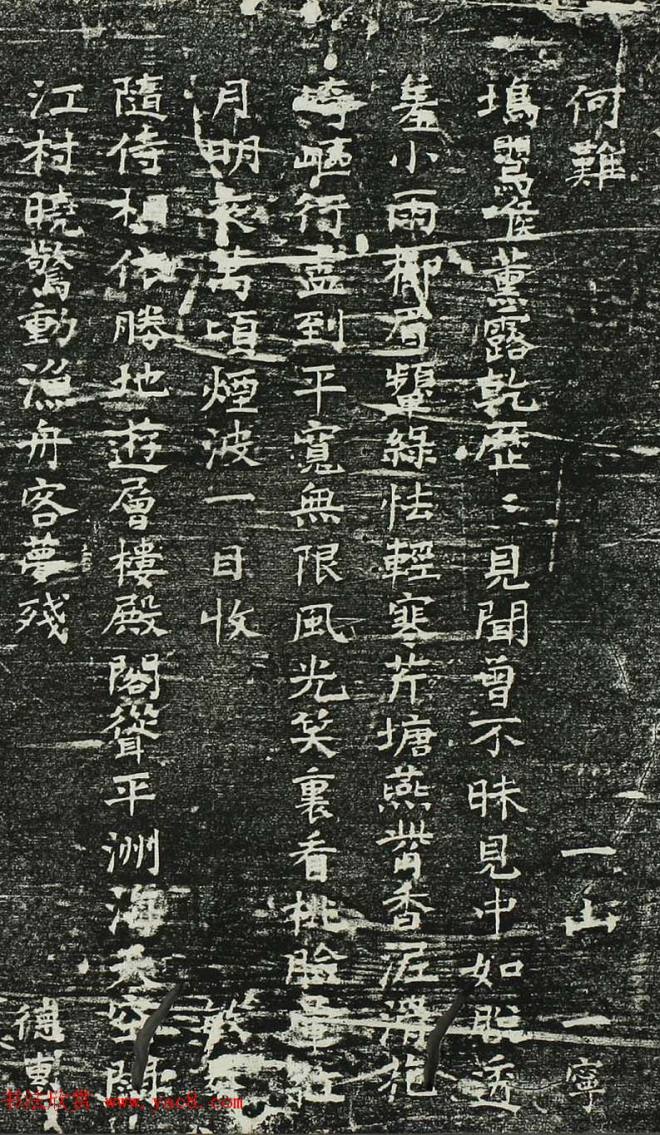 何難 一山一寧
塢鸎催薰露乾歷〻見聞曾不昧見中如眼透
羞小雨柳眉顰綠怯輕寒芹塘燕觜香泥滑花
崎嶇行盡到平寬無限風光笑裏看桃臉暈紅
月明夜萬頃煙波一目收
隨侍杖作勝地遊層樓殿閣聳平洲海天空闊
江村曉驚動漁舟客夢殘 德惠
书法欣赏 www.yac8.com